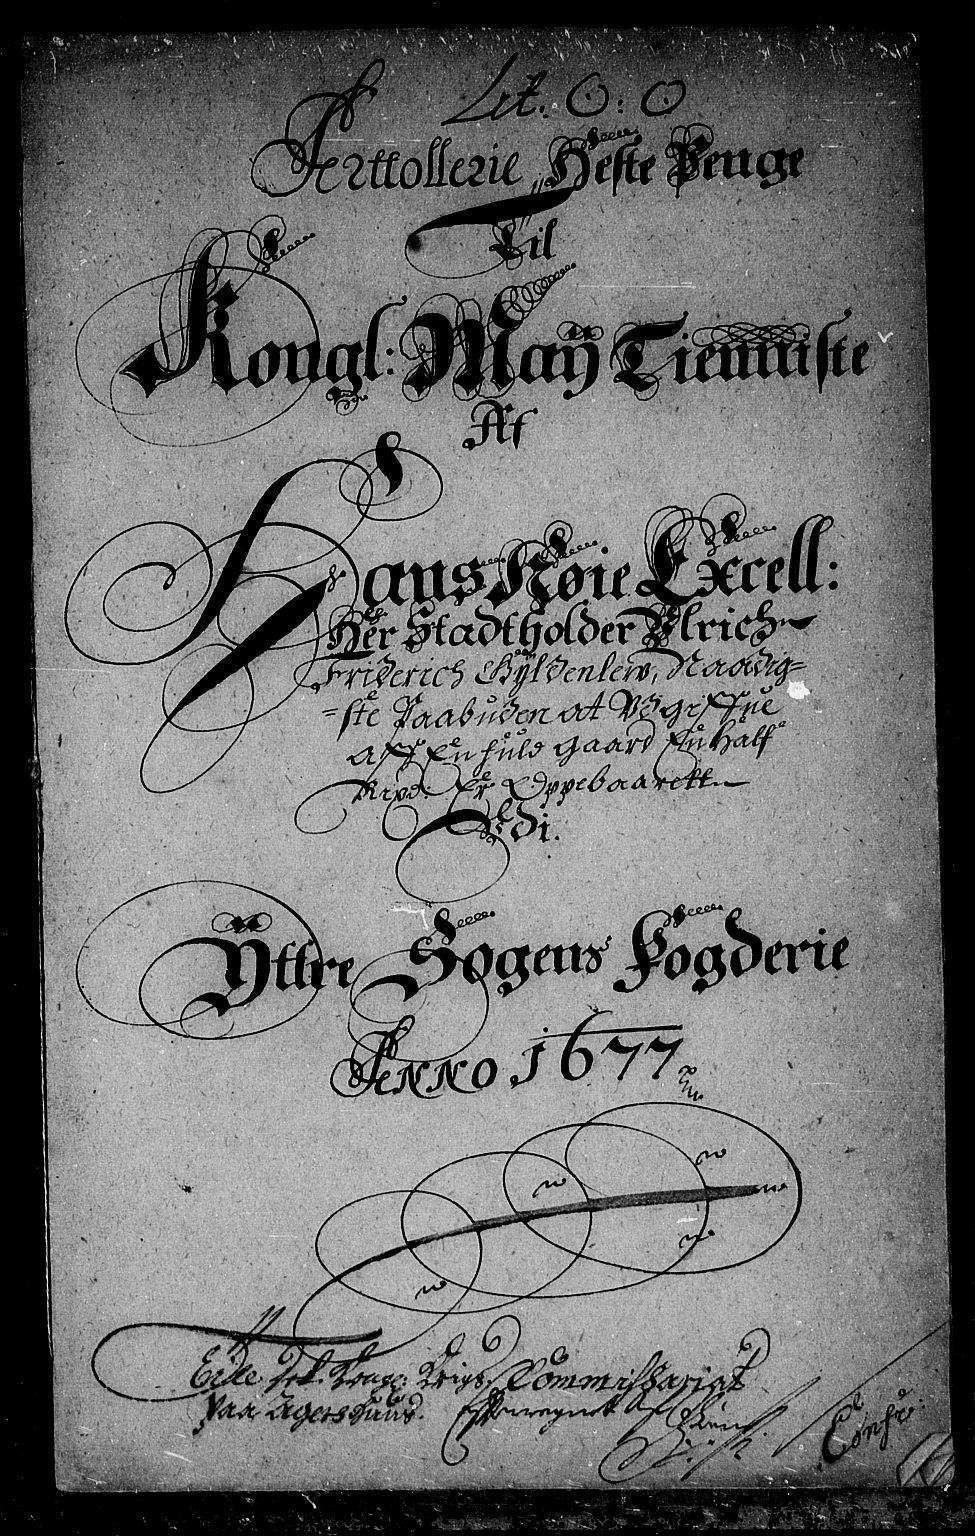 Lit: O: O
Arttollerie Heste Penge
Til
Kongl: Maÿ Tienniste
Af
Hans Høie Excell:
Her Stadtholder Vlrich
Friderich Gÿldenlew, Naadig=
=ste Paabuden at Vdgiffue
aff En fuld gaard En half
Rixd: Er Oppebaarett
Vdi.
Ÿttre Sogens Fogderie
Anno 1677
Krigs Commissariat
paa Agershuus.